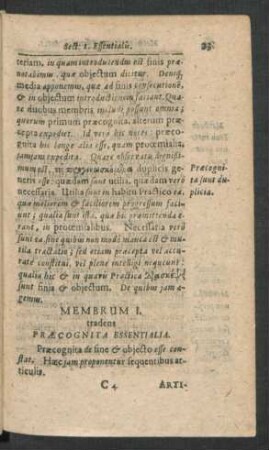 Sect: 1. Essentialis. 23
teriam, in quam introducendum est finis præ-
notabimus, quæ objectum dicitur. Deniq,
media apponemus, quæ ad finis consecutionem,
& in objectum introductionem faciant. Qua-
re duobus membris absolvi possunt omnia;
quorum primum præcognita, alterum præ-
cepta expediet. Id vero hic notes: præco-
gnita hic longe alia esse, quam proœmialia,
jam jam expedita. Quare observatu dignissi-
mum est, duplicis ge-
neris esse: quædam sunt utilia, quædam verò
necessaria. Utilia sunt in habitu Practico ea,
quæ meliorem & faciliorem progressum faci-
unt; qualia sunt ista, quæ hic præmittenda e-
rant, in proœmialibus. Necessaria verò
sunt ea sine quibus non modò manca est & mu-
tila tractatio; sed etiam præcepta vel accu-
ratè constitui, vel plenè intelligi nequeunt:
qualia hic & in quavis Practica
sunt finis & objectum. De quibus jam a-
gemus.
Præcogni-
ta sunt du-
plicia.
MEMBRUM I.
tradens
PRÆCOGNITA ESSENTIALIA.
Præcognita de fine & objecto esse con-
stat. Hæc jam proponentur sequentibus ar-
ticulis.
C 4 ARTI-